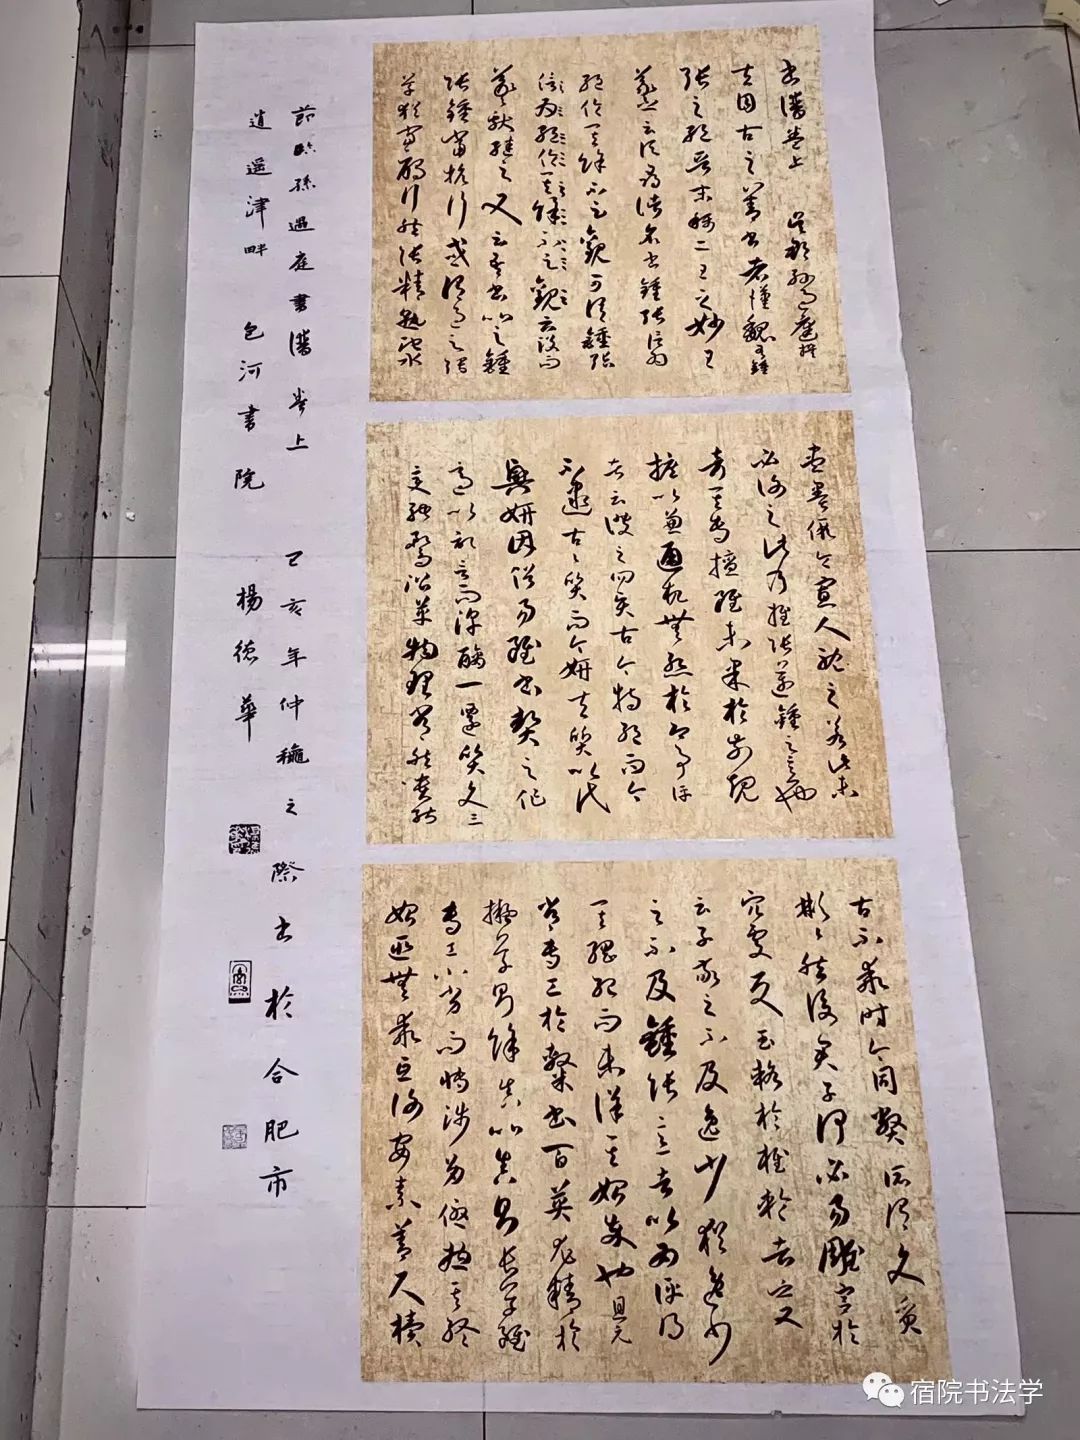 書譜卷上 吴郡孫過庭撰
夫自古之善書者漢魏有鍾
張之絶晉末稱二王之妙王
羲之云頃尋諸名書鍾張信為
絶倫其餘不足觀可謂鍾張
信為絶倫其餘不足觀云没而
羲獻繼之又云吾書比之鍾
張鍾當抗行或謂過之張
草猶當鴈行然張精熟池水
盡墨假令寡人耽之若此未
必謝之此乃推張邁鍾之意也
考其專擅雖未果於前規
摭以兼通故無慙於即事評
者云彼之四賢古今特絶而今
不逮古古質而今妍夫質以代
興妍因俗易雖書契之作
適以記言而淳醨一遷質文三
變馳鶩沿革物理常然貴能
古不乖時今同弊所謂文質
彬彬然後君子何必易雕宮於
穴處反玉輅於椎輪者乎又
云子敬之不及逸少猶逸少
之不及鍾張意者以為評得
其綱紀而未詳其始卒也且元
常專工於隸書百英尤精於
擬草則餘真比真則長草雖
專工小劣而博涉多優揔其終
始匪無乖互謝安素善尺牘
節臨孫過庭書譜卷上 己亥年仲龝之際書於合肥市
逍遥津畔 包河書院 楊德華
宿院书法学